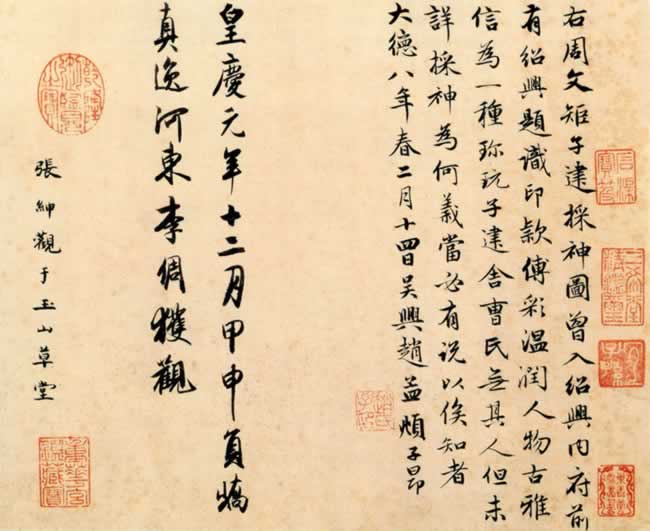 右周文矩子建採神圖曾入紹興內府前
有紹興題識印款傅彩溫潤人物古雅
信為一種珎玩子建舍曹氏无其人但未
詳採神為何義當必有说以俟知者
大德八年春二月十四日吴興趙孟頫子昂
皇慶元年十二月甲申員嶠
真逸河東李倜獲觀
張紳觀于玉山草堂